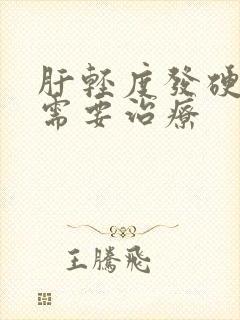 肝輕度發硬
需要治療
王騰飛